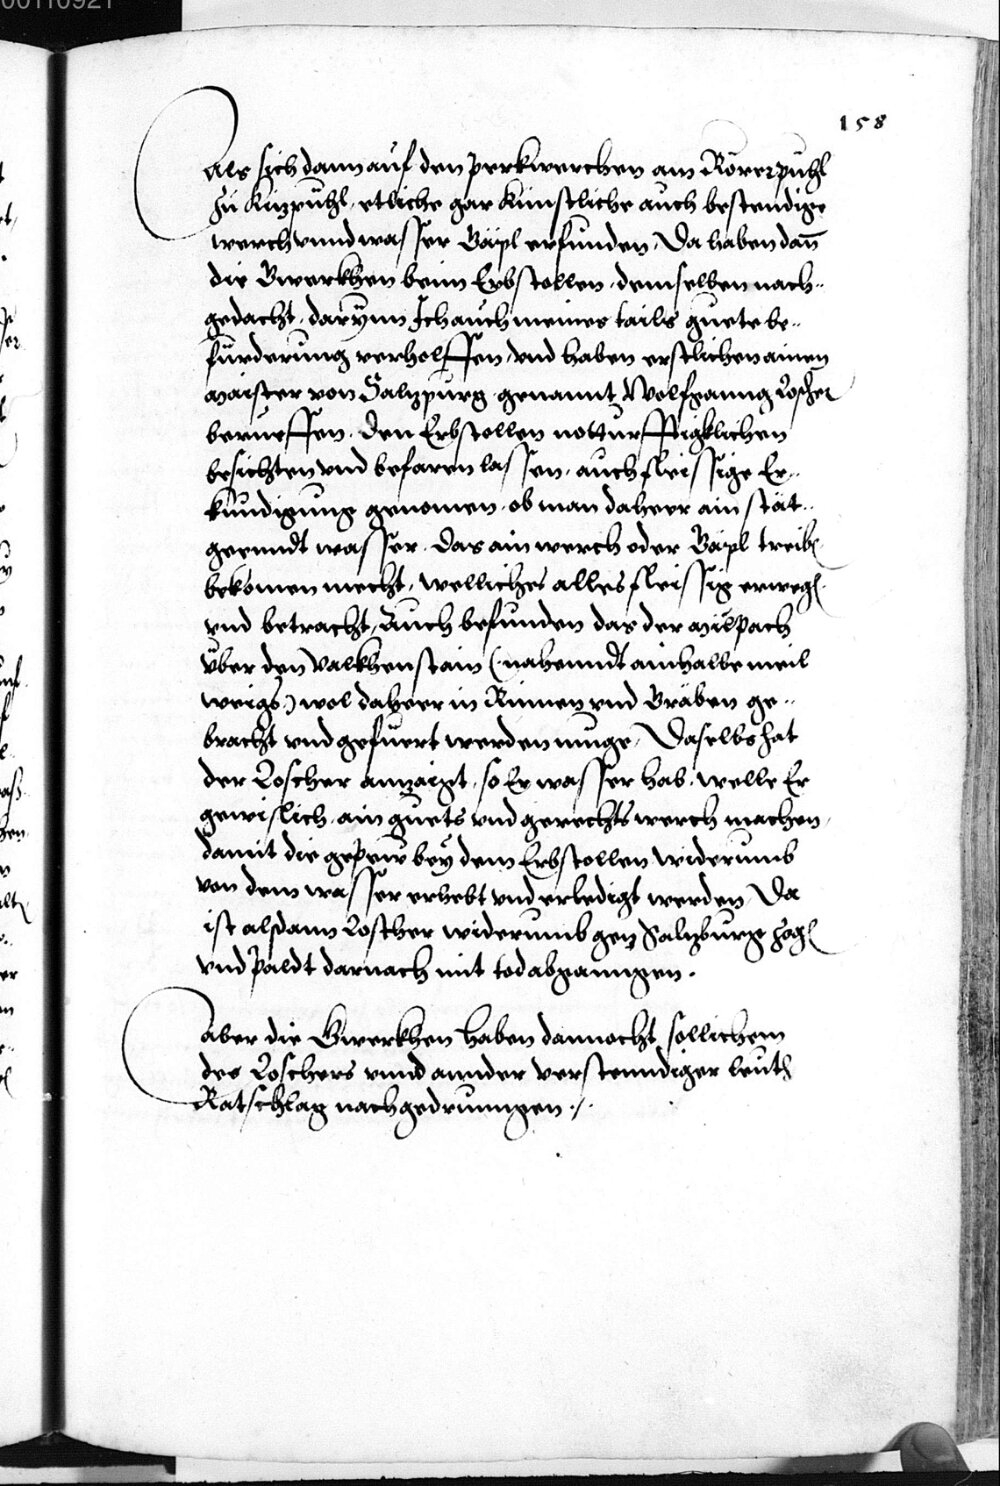 00110921
158
Als sich dann auf den perkwerchen am Rörerpuhl
zu Kitzpuhl, etliche gar künstliche auch bestendige
werch vnnd wasser Göpl erfunden, Da haben dañ
die Gwerkhen beim Erbstollen, demselben nach-
gedacht, darynn Ich auch meines tails guete be-
fürderung verholffen, vnd haben erstlichen ainen
maister von Saltzpurg genannt Wolfganng Loscher
berueffen. Den Erbstollen notturfftigklichen
besichten vnd befaren lassen, auch fleissige Er-
kundigung genomen, ob man daheer ain stät-
geenndt wasser, das ain werch oder Göpl treib
bekomen mecht, welliches alles fleissig erwegt
vnd betracht, Auch befunden das der Mülpach
über den Valkhenstain (nahenndt ain halbe meil
weigs) wol daheer in Rinnen vnd Gräben ge-
bracht vnd gefuert werden muge, Daselbs hat
der Loscher anzaigt, so Er wasser hab, welle Er
gewislich ain guets vnd gerechts werch machen,
damit die gepew bey dem Erbstollen widerumb
von dem wasser erhebt vnd erledigt werden, Da
ist alsdann Loscher widerumb gen Saltzburg
vnd paldt darnach mit tod abganngen.
Aber die Gwerkhen haben dannocht sollichem
des Loschers vnnd annder verstenndiger leuth
Ratschlag nachgedrunngen ./.